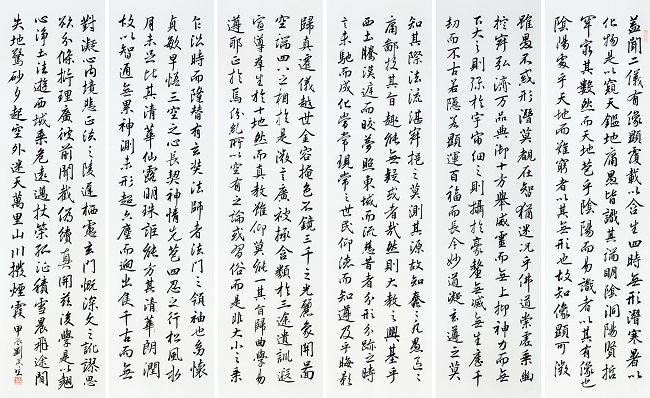 蓋聞二儀有像顯覆載以含生四時無形潛寒暑以
化物是以窺天鑑地庸愚皆識其端明陰洞陽賢哲
罕窮其數然而天地苞乎陰陽而易識者以其有像也
陰陽處乎天地而難窮者以其無形也故知像顯可徵
雖愚不惑形潛莫覩在智猶迷況乎佛道崇虛乘幽
控寂弘濟萬品典御十方舉威靈而無上抑神力而無
下大之則彌於宇宙細之則攝於豪釐無滅無生歷千
劫而不古若隱若顯運百福而長今妙道凝玄遵之莫
知其際法流湛寂挹之莫測其源故知蠢蠢凡愚區區
庸鄙投其旨趣能無疑或者哉然則大教之興基乎
西土騰漢庭而皎夢照東域而流慈昔者分形分跡之時
言未馳而成化當常現常之世民仰德而知遵及乎晦影
歸真遷儀越世金容掩色不鏡三千之光麗象開圖
空端四八之相於是微言廣被拯含類於三途遺訓遐
宣導群生於十地然而真教難仰莫能一其旨歸曲學易
遵邪正於焉紛糺所以空有之論或習俗而是非大小之乘
乍沿時而隆替有玄奘法師者法門之領袖也幼懷
貞敏早悟三空之心長契神情先苞四忍之行松風水
月未足比其清華仙露明珠詎能方其清華朗潤
故以智通無累神測未形超六塵而迥出隻千古而無
對凝心內境悲正法之陵遲栖慮玄門慨深文之訛謬思
欲分條析理廣彼前聞截偽續真開茲後學是以翹
心淨土法遊西域乘危遠邁杖策孤征積雪晨飛途閒
失地驚砂夕起空外迷天萬里山川撥煙霞 甲辰劉